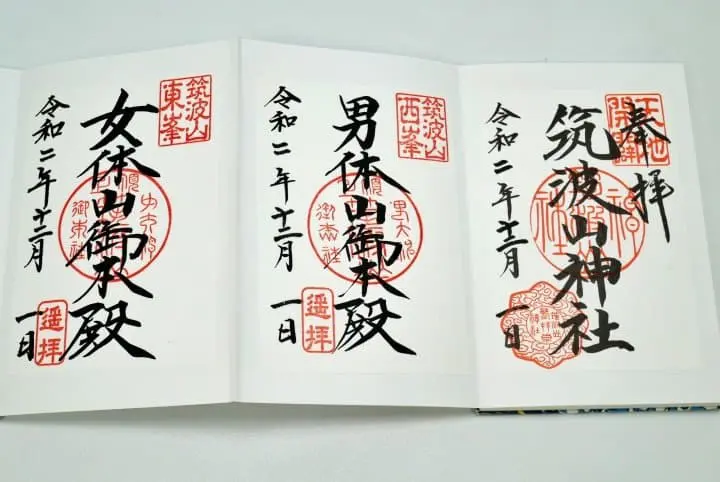 奉拝
天地
開闢
筑波山神社
令和二年十二月
一日
筑波山
西峯
男体山御本殿
遥拝
令和二年十二月
一日
筑波山
東峯
女体山御本殿
遥拝
令和二年十二月
一日